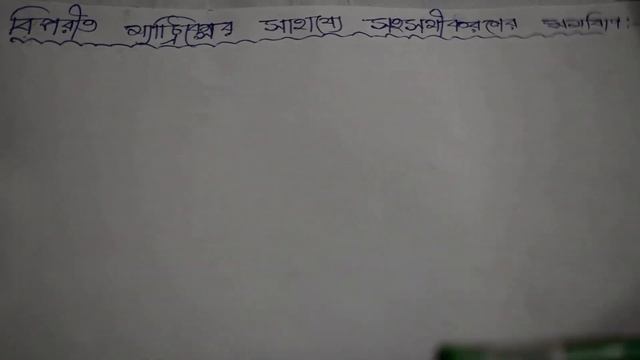 বিপরীত ম্যাট্রিক্সের সাহায্যে সহসমীকরণের সমাধান: